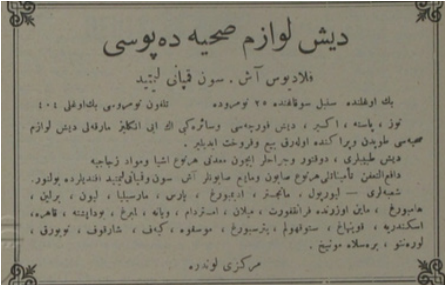 دیش لوازم صحیه ده‌پوسی
فلادیوس آش . سون قمپانی لیمیتید
بك اوغلنده سنبل سوقاغنده ٢٥ نومروده تلفون نومروسی بك‌اوغلی ٤٠٤
توز، پاسته، اكسیر، دیش فورچه‌سی وسائره‌كی اك ایی انكلیز مارقه‌لی دیش لوازم
صحیه‌سی طوپدن وپراكنده اوله‌رق بیع وفروخت ایدیلیر.
دیش طبیبلری، دوقتور وجراحلر ایچون معدنی هرنوع اشیا ومواد زجاجیه
دافع‌التعفن تأمیناتلی هرنوع صابون ومایع صابونلر آش. سون وقمپانی لیمیتید افندیلرده بولنور.
شعبه‌لری — لیورپول، مانچستر، ادیمبورغ، پارس، مارسیلیا، لیون، برلین،
هامبورغ، ماین اوزرنده فرانقفورت، میلان، امستردام، ویانه، لمبرغ، بوداپشته، قاهره،
اسكندریه، قوپنهاغ، ستوقهولم، پترسبورغ، موسقوه، كیه‌ف، شارقوف، نویورق،
لورهنتو، برەسلاو مونیخ.
مركزی لوندره